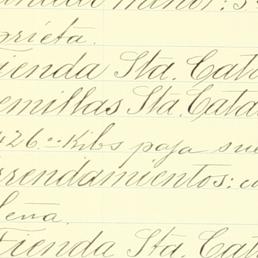 grieta.
Tienda Sta. Cata
emillas Sta. Catal
426.00 Kilos paja sue
rrendamientos: c
Leña.
Tienda Sta. Cata